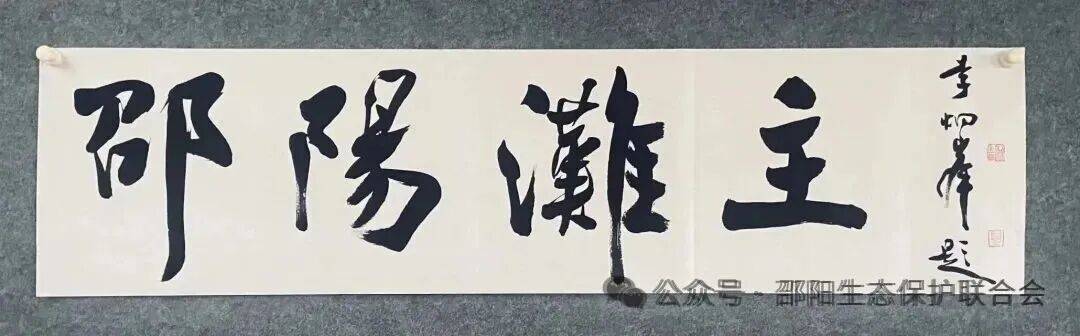 邵陽灘主
李炳峯题
公众号·邵阳生态保护联合会